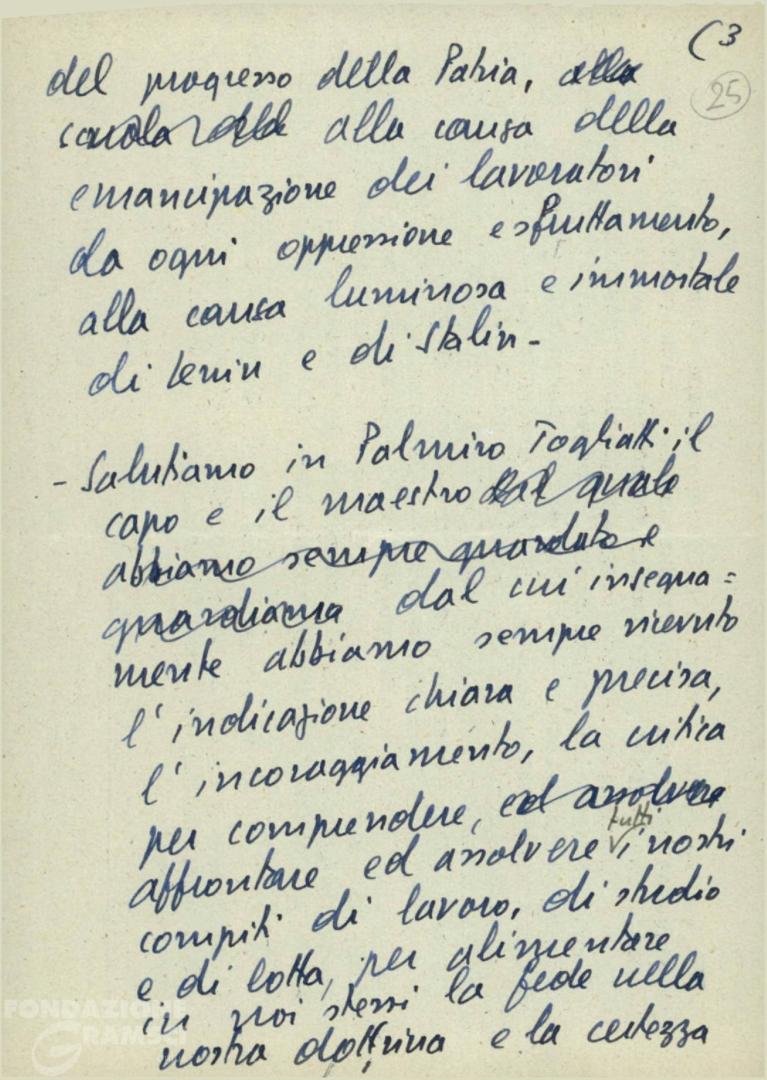 (3
25
del progresso della Patria, alla
alla causa della
emancipazione dei lavoratori
da ogni oppressione e sfruttamento,
alla causa luminosa e immortale
di Lenin e di Stalin -
- Salutiamo in Palmiro Togliatti il
capo e il maestro dal quale
abbiamo sempre guardato e
guardiamo dal cui insegna=
mente abbiamo sempre ricevuto
l'indicazione chiara e precisa,
l'incoraggiamento, la critica
per comprendere, ed assolvere
tutti
affrontare ed assolvere i nostri
compiti di lavoro, di studio
e di lotta, per alimentare
in noi stessi la fede nella
nostra dottrina e la certezza
FONDAZIONE
GRAMSCI